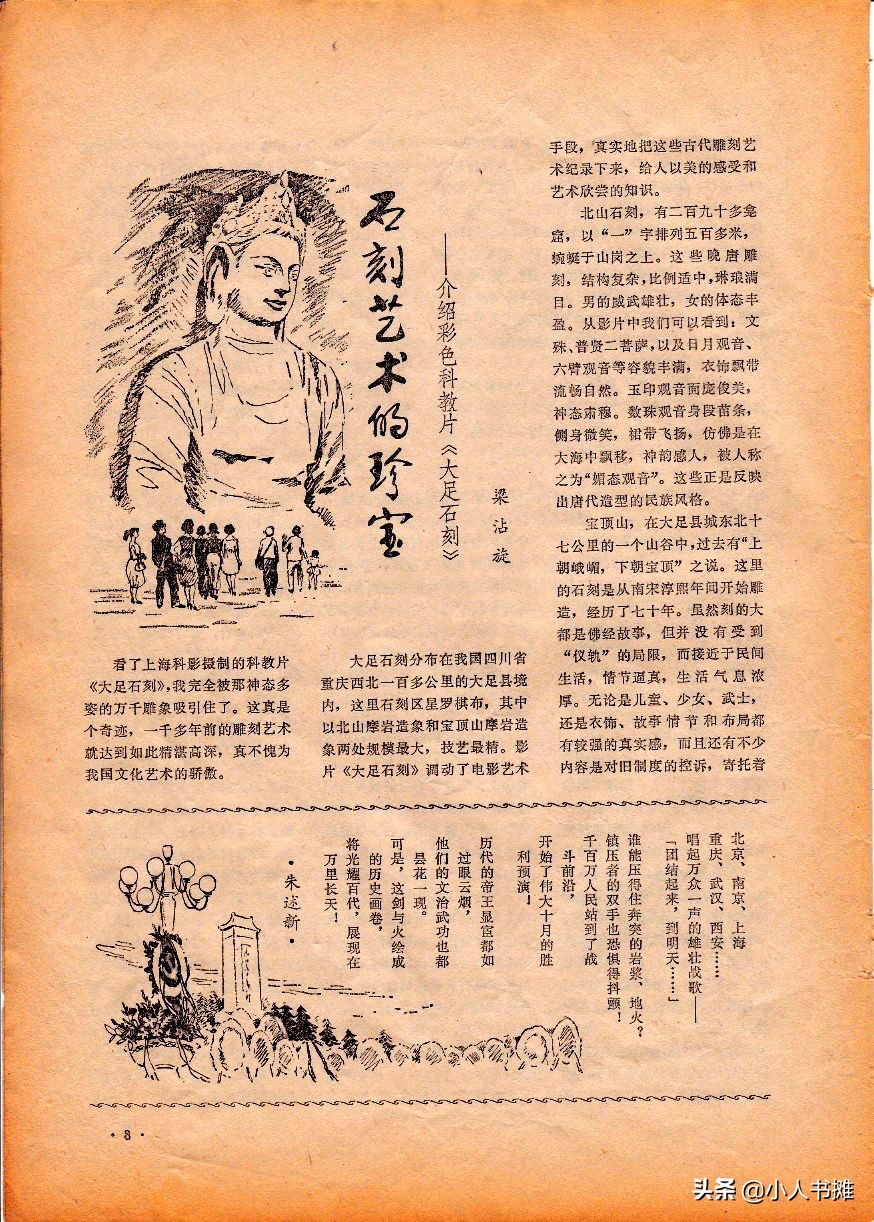 石刻艺术的珍宝
——介绍彩色科教片《大足石刻》
梁沾旋
看了上海科影摄制的科教片
《大足石刻》，我完全被那神态多
姿的万千雕象吸引住了。这真是
个奇迹，一千多年前的雕刻艺术
就达到如此精湛高深，真不愧为
我国文化艺术的骄傲。
大足石刻分布在我国四川省
重庆西北一百多公里的大足县境
内，这里石刻区星罗棋布，其中
以北山摩岩造象和宝顶山摩岩造
象两处规模最大，技艺最精。影
片《大足石刻》调动了电影艺术
手段，真实地把这些古代雕刻艺
术纪录下来，给人以美的感受和
艺术欣尝的知识。
北山石刻，有二百九十多龛
窟，以“一”字排列五百多米，
蜿蜒于山岗之上。这些晚唐雕
刻，结构复杂，比例适中，琳琅满
目。男的威武雄壮，女的体态丰
盈。从影片中我们可以看到：文
殊、普贤二菩萨，以及日月观音、
六臂观音等容貌丰满，衣饰飘带
流畅自然。玉印观音面庞俊美，
神态肃穆。数珠观音身段苗条，
侧身微笑，裙带飞扬，仿佛是在
大海中飘移，神韵感人，被人称
之为“媚态观音”。这些正是反映
出唐代造型的民族风格。
宝顶山，在大足县城东北十
七公里的一个山谷中，过去有“上
朝峨嵋，下朝宝顶”之说。这里
的石刻是从南宋淳熙年间开始雕
造，经历了七十年。虽然刻的大
都是佛经故事，但并没有受到
“仪轨”的局限，而接近于民间
生活，情节逼真，生活气息浓
厚。无论是儿童、少女、武士，
还是衣饰、故事情节和布局都
有较强的真实感，而且还有不少
内容是对旧制度的控诉，寄托着
北京、南京、上海
重庆、武汉、西安……
唱起万众一声的雄壮战歌——
「团结起来，到明天……」
谁能压得住奔突的岩浆、地火？
镇压者的双手也恐惧得抖颤！
千百万人民站到了战
斗前沿，
开始了伟大十月的胜
利预演！
历代的帝王显宦都如
过眼云烟，
他们的文治武功也都
昙花一现。
可是，这剑与火绘成
的历史画卷，
将光耀百代，展现在
万里长天！
·朱述新·
·8·
头条 @小人书摊